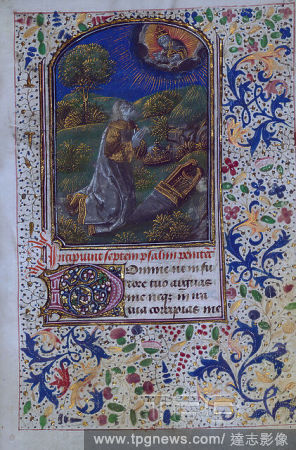 Incipiunt septem psalmi peniten
Domine ne in fu
rore tuo arguas
me neqz in ira
tua corripias me
www.tpgnews.com/ 達志影像